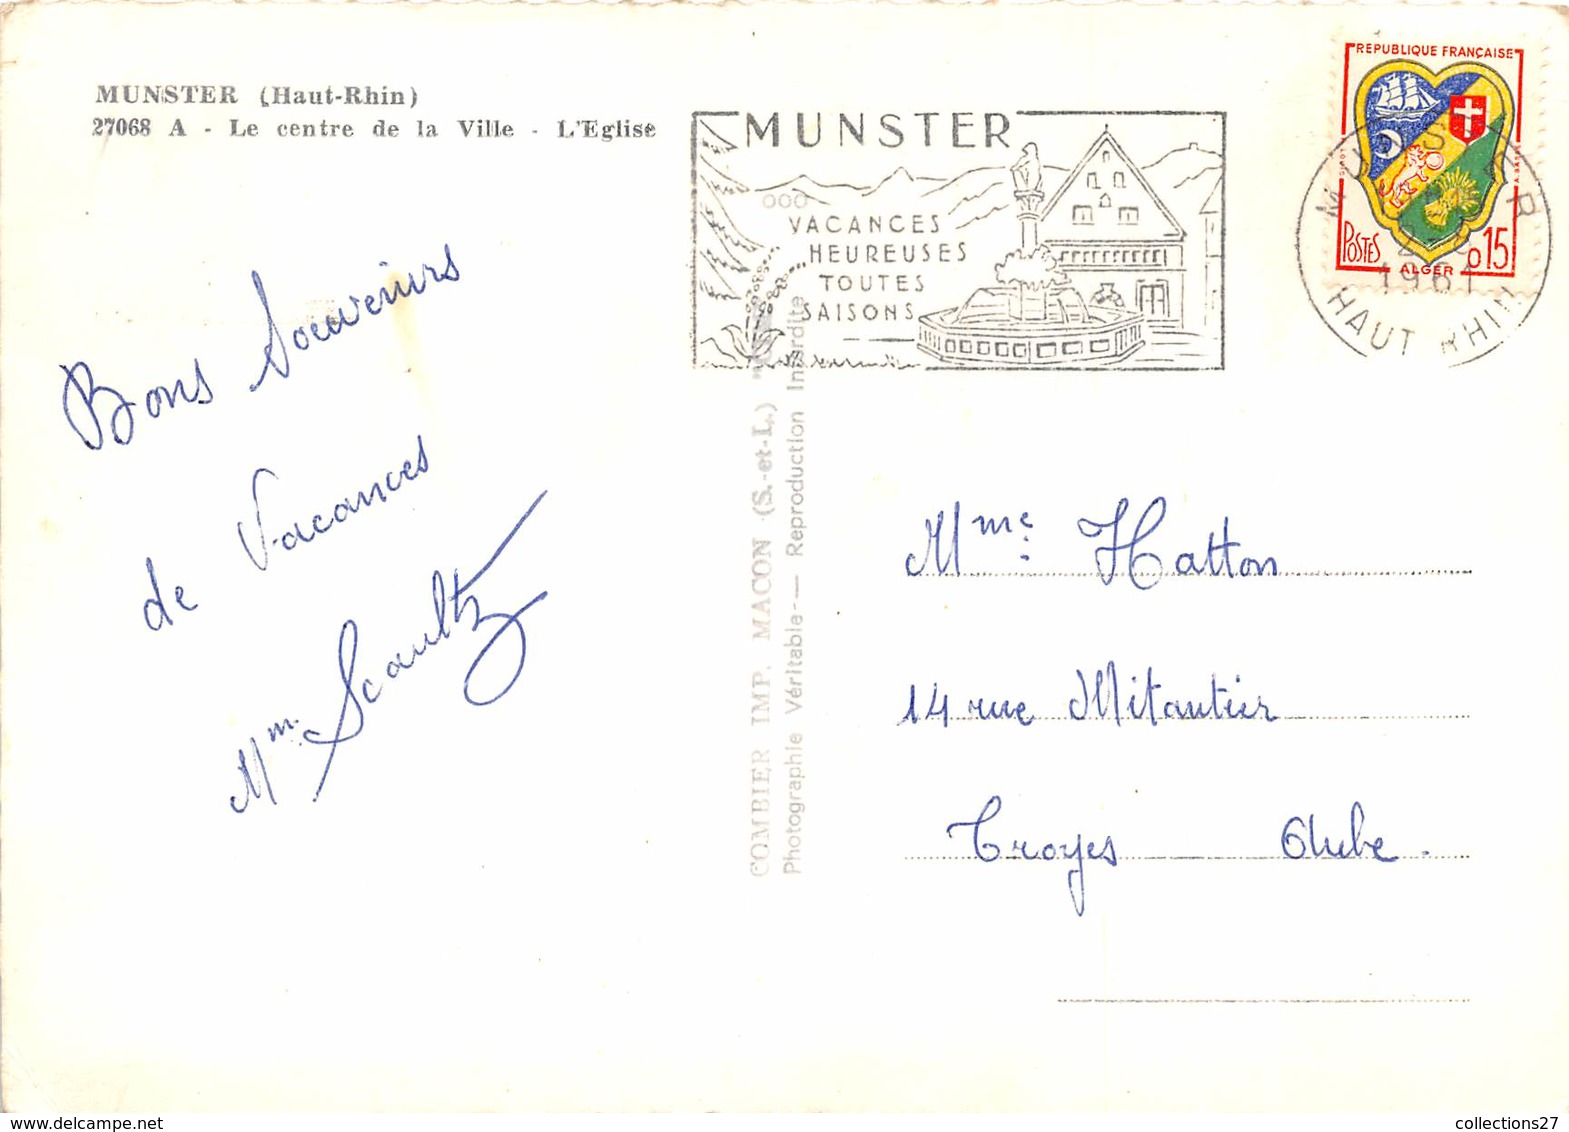 MUNSTER (Haut-Rhin)
27068 A - Le centre de la Ville - L'Eglise
MUNSTER
VACANCES
HEUREUSES
TOUTES
SAISONS
REPUBLIQUE FRANÇAISE
POSTES
ALGER
0,15
MUNSTER
1961
HAUT RHIN
Bons Souvenirs
de Vacances
Mme Scaultz
COMBIER IMP. MACON (S.-et-L.)
Photographie Véritable — Reproduction Interdite
Mme Hatton
14 rue Mitantier
Troyes Aube.
collections27